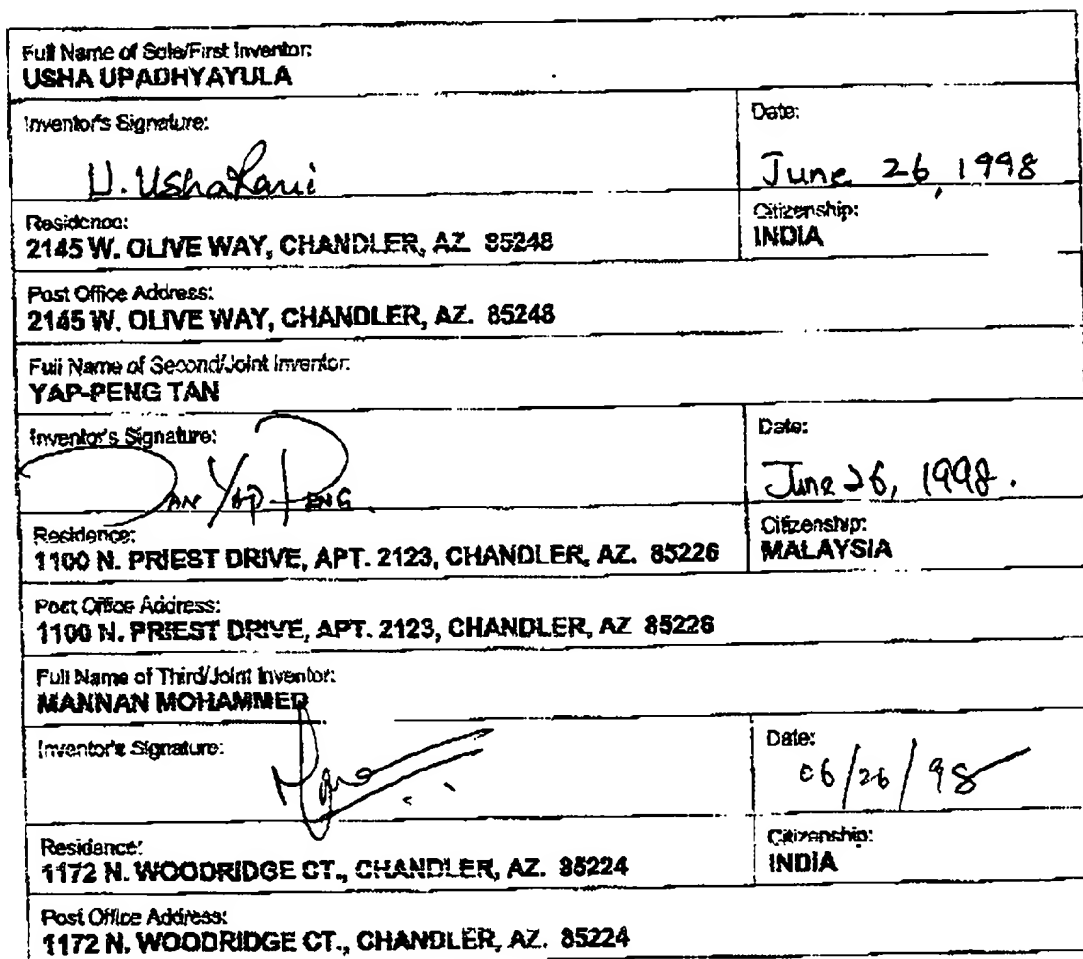 Full Name of Sole/First Inventor:
USHA UPADHYAYULA
Inventor's Signature:
Date:
U. Usha Rani
June 26, 1998
Residence:
Citizenship:
2145 W. OLIVE WAY, CHANDLER, AZ. 85248
INDIA
Post Office Address:
2145 W. OLIVE WAY, CHANDLER, AZ. 85248
Full Name of Second/Joint Inventor:
YAP-PENG TAN
Inventor's Signature:
Date:
TAN YAP PENG
June 26, 1998.
Residence:
Citizenship:
1100 N. PRIEST DRIVE, APT. 2123, CHANDLER, AZ. 85226
MALAYSIA
Post Office Address:
1100 N. PRIEST DRIVE, APT. 2123, CHANDLER, AZ 85226
Full Name of Third/Joint Inventor:
MANNAN MOHAMMED
Inventor's Signature:
Date:
06/26/98
Residence:
Citizenship:
1172 N. WOODRIDGE CT., CHANDLER, AZ. 85224
INDIA
Post Office Address:
1172 N. WOODRIDGE CT., CHANDLER, AZ. 85224